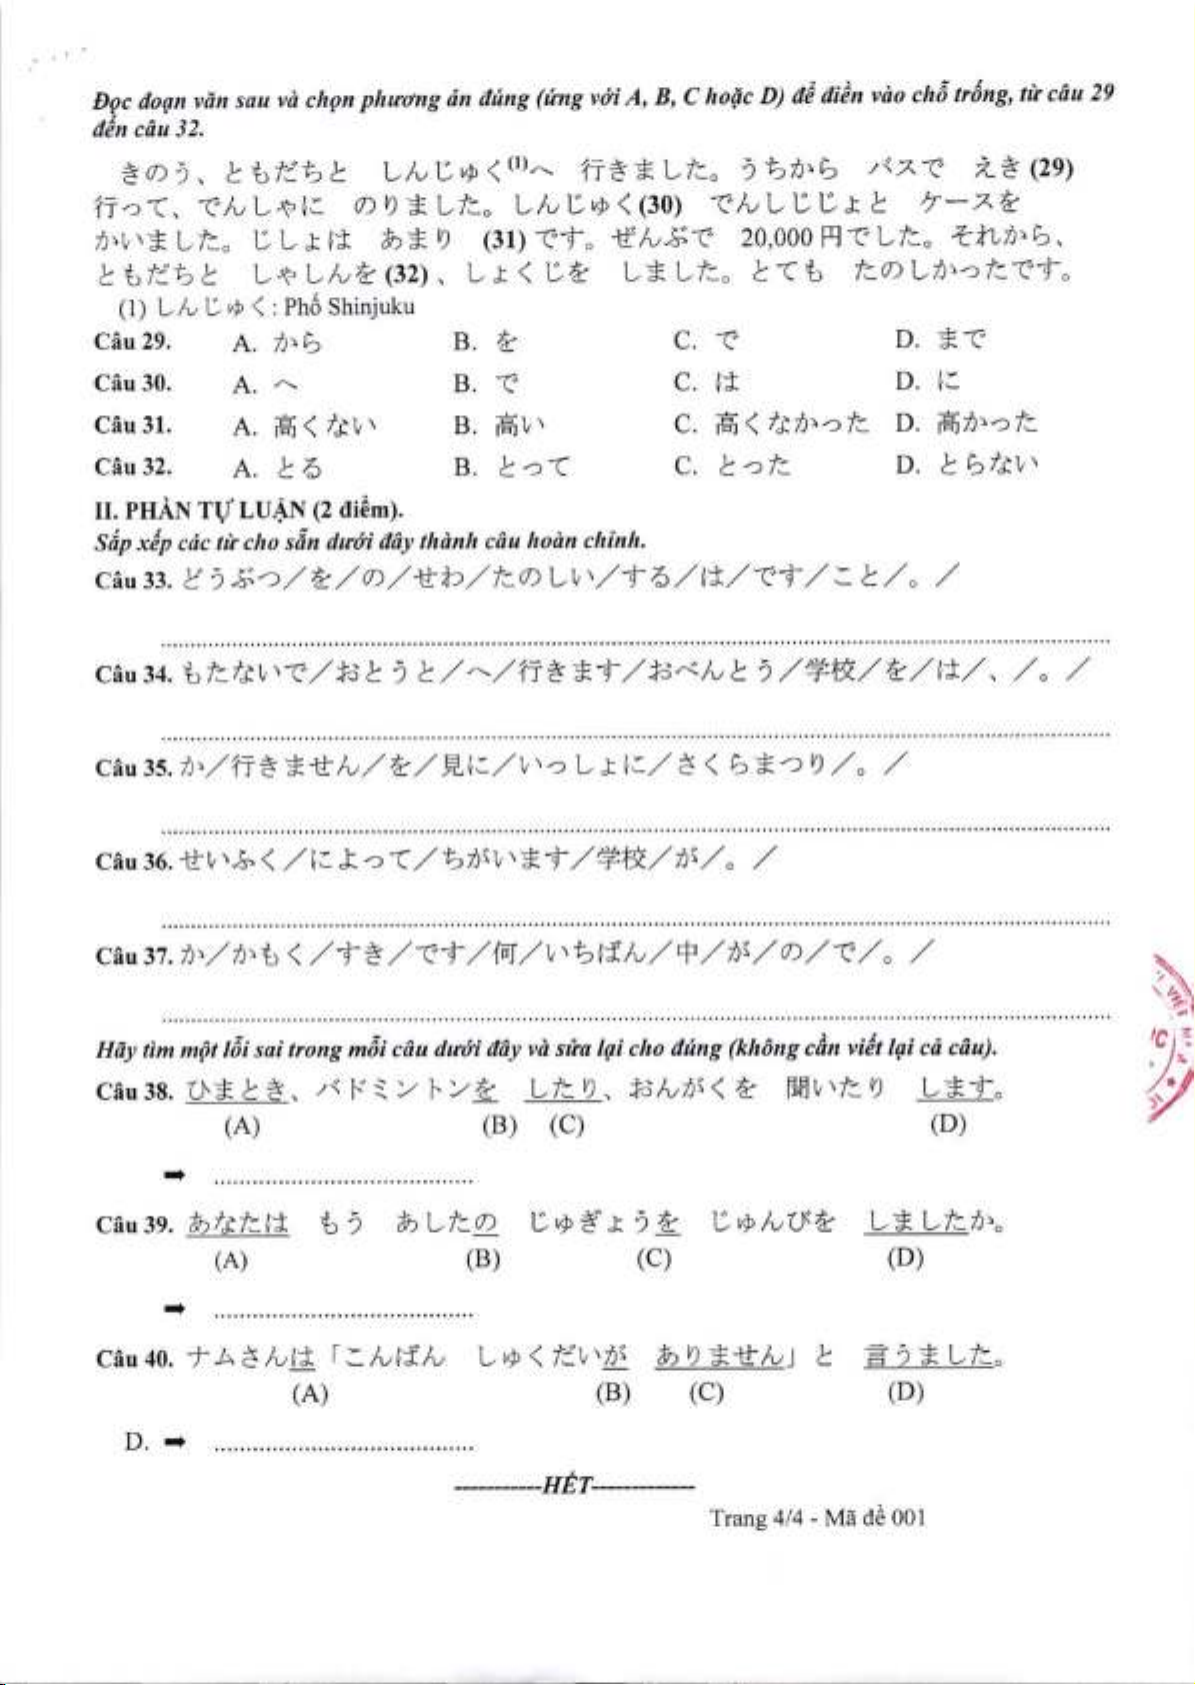 Đọc đoạn văn sau và chọn phương án đúng (ứng với A, B, C hoặc D) để điền vào chỗ trống, từ câu 29
đến câu 32.
きのう、ともだちと　しんじゅく(1)へ　行きました。うちから　バスで　えき (29)
行って、でんしゃに　のりました。しんじゅく(30)　でんしじじょと　ケースを
かいました。じしょは　あまり　(31) です。ぜんぶで　20,000 円でした。それから、
ともだちと　しゃしんを (32) 、しょくじを　しました。とても　たのしかったです。
(1) しんじゅく: Phố Shinjuku
Câu 29. A. から B. を C. で D. まで
Câu 30. A. へ B. で C. は D. に
Câu 31. A. 高くない B. 高い C. 高くなかった D. 高かった
Câu 32. A. とる B. とって C. とった D. とらない
II. PHẦN TỰ LUẬN (2 điểm).
Sắp xếp các từ cho sẵn dưới đây thành câu hoàn chỉnh.
Câu 33. どうぶつ／を／の／せわ／たのしい／する／は／です／こと／。／
Câu 34. もたないで／おとうと／へ／行きます／おべんとう／学校／を／は／、／。／
Câu 35. か／行きません／を／見に／いっしょに／さくらまつり／。／
Câu 36. せいふく／によって／ちがいます／学校／が／。／
Câu 37. か／かもく／すき／です／何／いちばん／中／が／の／で／。／
Hãy tìm một lỗi sai trong mỗi câu dưới đây và sửa lại cho đúng (không cần viết lại cả câu).
Câu 38. ひまとき、バドミントンを　したり、おんがくを　聞いたり　します。
(A) (B) (C) (D)
➡ ........................................
Câu 39. あなたは　もう　あしたの　じゅぎょうを　じゅんびを　しましたか。
(A) (B) (C) (D)
➡ ........................................
Câu 40. ナムさんは「こんばん　しゅくだいが　ありません」と　言うました。
(A) (B) (C) (D)
D. ➡ ........................................
------------HẾT--------------
Trang 4/4 - Mã đề 001